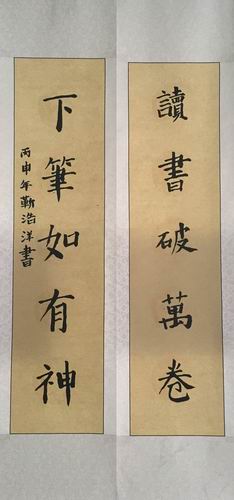 讀書破萬卷
下筆如有神
丙申年靳浩洋書